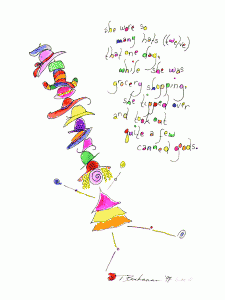 she wore so
many hats (twelve)
that one day,
while she was
grocery shopping,
she tipped over
and took out
quite a few
canned goods.